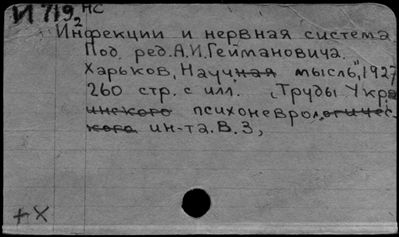 И 719₂ НС
Инфекции и нервная система
Под. ред. А.И. Геймановича.
Харьков, „Научная мысль", 1927
260 стр. с илл. „Труды Укра
инского психоневрологичес-
кого ин-та. В. 3,
+ X